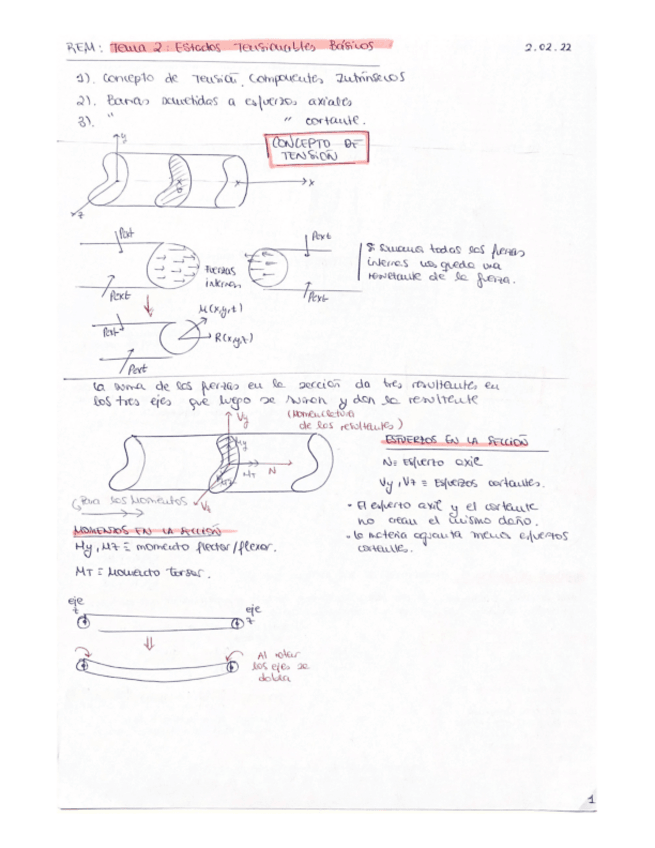 REM: Tema 2: Estados Tensionables Básicos
2.02.22
1). Concepto de Tensión. Componentes Intrínsecos
2). Barras sometidas a esfuerzos axiales
3). " " cortante.
CONCEPTO DE
TENSIÓN
y
x
z
Pext
Pext
fuerzas
internas
Pext
Pext
Si sumamos todas las fuerzas
internas nos queda una
resultante de la fuerza.
M(x,y,z)
R(x,y,z)
Pext
Pext
La suma de las fuerzas en la sección da tres resultantes en
los tres ejes que luego se suman y dan la resultante
(Nomenclatura
de los resultantes)
Vy
My
MT
N
Mz
Vz
Para los Momentos
ESFUERZOS EN LA SECCIÓN
N ≡ Esfuerzo axil
Vy, Vz ≡ Esfuerzos cortantes.
- El esfuerzo axil y el cortante
no crean el mismo daño.
- La materia aguanta menos esfuerzos
cortantes.
MOMENTOS EN LA SECCIÓN
My, Mz ≡ momento flector/flexor.
MT ≡ Momento torsor.
eje
z
eje
z
Al rotar
los ejes se
dobla
1